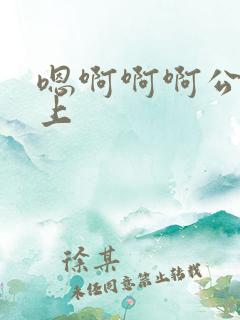 嗯啊啊啊公
上
徐某
未经同意禁止转载